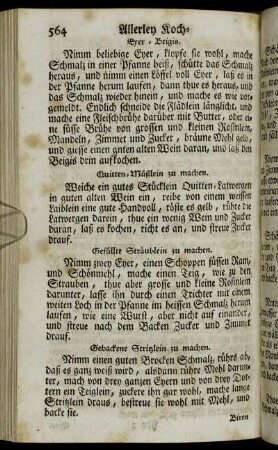 564 Allerley Koch-
Eyer-Beigis.
Nimm beliebige Eyer, klopfe sie wohl, mache
Schmalz in einer Pfanne heiß, schütte das Schmalz
heraus, und nimm einen Löffel voll Eyer, laß es in
der Pfanne herum laufen, dann thue es heraus, und
das Schmalz wieder hinein, und mache es wie vor-
gemeldt. Endlich schneide die Flädlein länglicht, und
mache eine Fleischbrühe darüber mit Butter, oder ei-
ne süsse Brühe von grossen und kleinen Rosinlein,
Mandeln, Zimmet und Zucker, bräune Mehl gelb,
und giesse einen guten alten Wein daran, und laß den
Beigis drin aufkochen.
Quitten-Müßlein zu machen.
Weiche ein gutes Stücklein Quitten-Latwergen
in guten alten Wein ein, reibe von einem weissen
Laiblein eine gute Handvoll, röste es gelb, rühre die
Latwergen darein, thue ein wenig Wein und Zucker
daran, laß es kochen, richt es an, und streue Zucker
drauf.
Gefüllte Sträublein zu machen.
Nimm zwey Eyer, einen Schoppen süssen Ram,
und Schönmehl, mache einen Teig, wie zu den
Strauben, thue aber grosse und kleine Rosinlein
darunter, lasse ihn durch einen Trichter mit einem
weiten Loch in der Pfanne im heissen Schmalz herum
laufen, wie eine Wurst, aber nicht auf einander,
und streue nach dem Backen Zucker und Zimmet
drauf.
Gebackene Stritzlein zu machen.
Nimm einen guten Brocken Schmalz, rührs ab,
daß es ganz weiß wird, alsdann rühre Mehl darun-
ter, mach von drey ganzen Eyern und von drey Dot-
tern ein Teiglein, zuckere ihn gar wohl, mache lange
Stritzlein draus, bestreue sie wohl mit Mehl, und
backe sie.
Biren